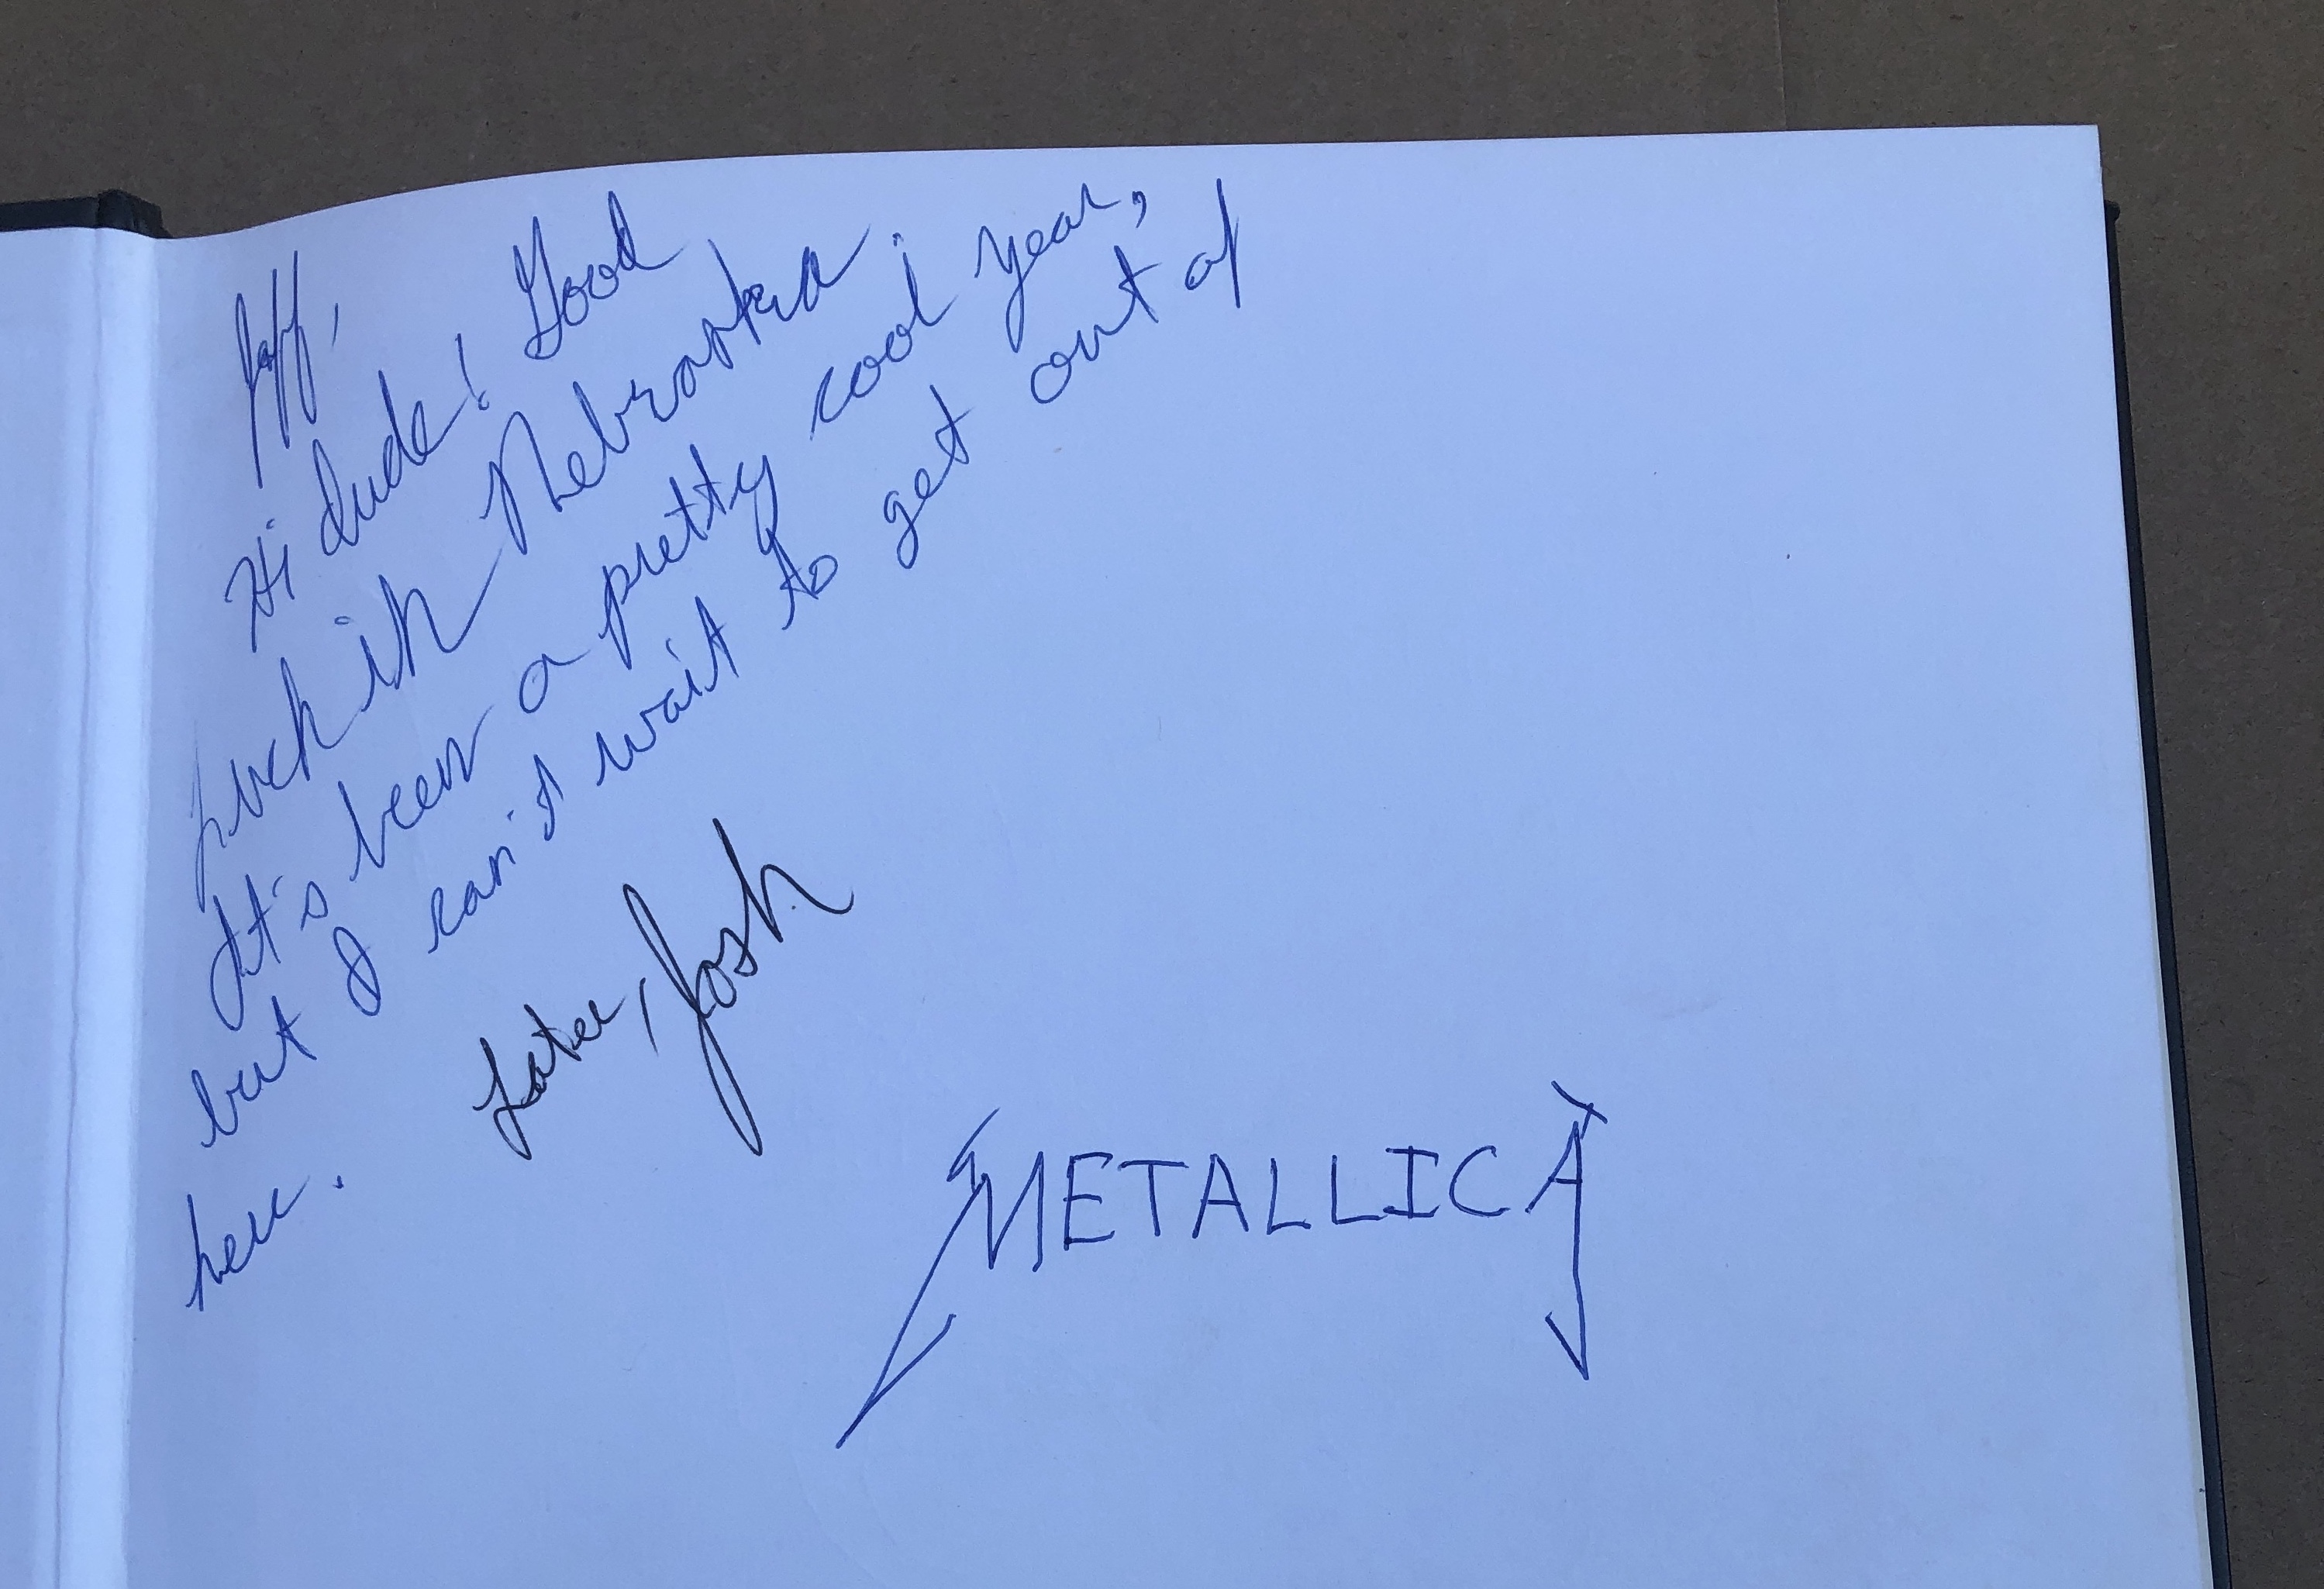 Jeff,
Hi dude! Good
luck in Nebraska.
It's been a pretty cool year,
but I can't wait to get out of
here.
Later, Josh
METALLICA